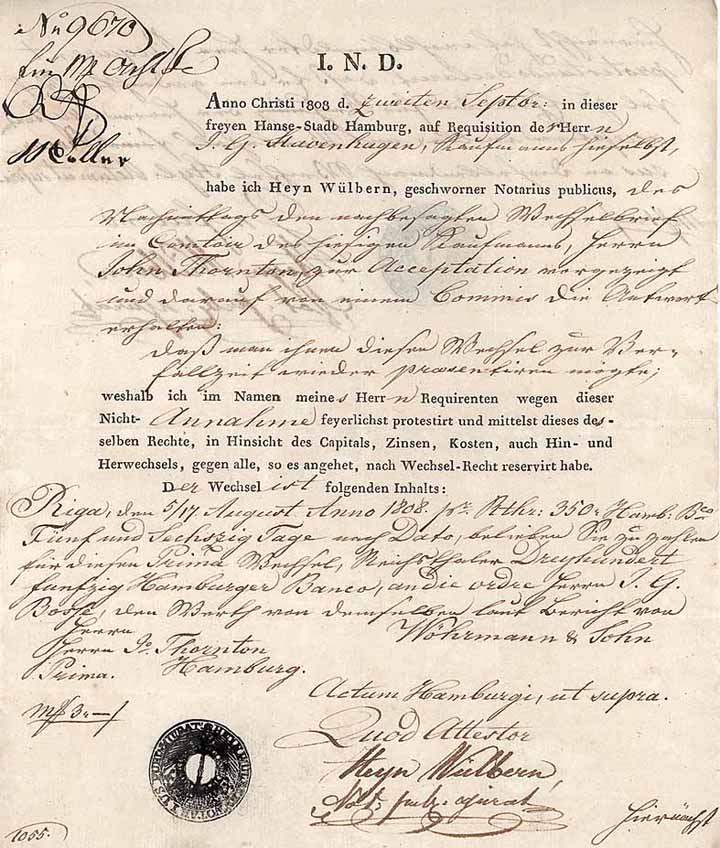 No 9670
für Mk Acht
Woller
I. N. D.
Anno Christi 1808 d. Zweiten Septbr: in dieser
freyen Hanse-Stadt Hamburg, auf Requisition der Herrn
J. G. Stavenhagen, Kaufmanns hieselbst,
habe ich Heyn Wülbern, geschworner Notarius publicus, des
Nachmittags den nachbesagten Wechselbrief
im Comtoir des hiesigen Kaufmanns, Herrn
John Thornton, zur Acceptation vorgezeigt
und darauf von einem Commis die Antwort
erhalten:
daß man ihnen diesen Wechsel zur Ver-
fallzeit wieder praesentiren mögte;
weshalb ich im Namen meines Herrn Requirenten wegen dieser
Nicht-Annahme feyerlichst protestirt und mittelst dieses des-
selben Rechte, in Hinsicht des Capitals, Zinsen, Kosten, auch Hin- und
Herwechsels, gegen alle, so es angehet, nach Wechsel-Recht reservirt habe.
Der Wechsel ist folgenden Inhalts:
Riga, den 5/17 August Anno 1808. pr. Rthr: 350 Hamb: Bco
Fünf und Sechszig Tage nach Dato, belieben Sie zu zahlen
für diesen Prima Wechsel, Reichsthaler Dreyhundert
funfzig Hamburger Banco, an die ordre Herrn J. G.
Bosse, den Werth von demselben laut Bericht von
Herrn
Wöhrmann & Sohn
Herrn Jo. Thornton
Hamburg.
Prima.
Actum Hamburgi, ut supra.
Mk 3 ,, —
Quod Attestor
Heyn Wülbern,
Not. publ. jurat
hiernächst
1055.